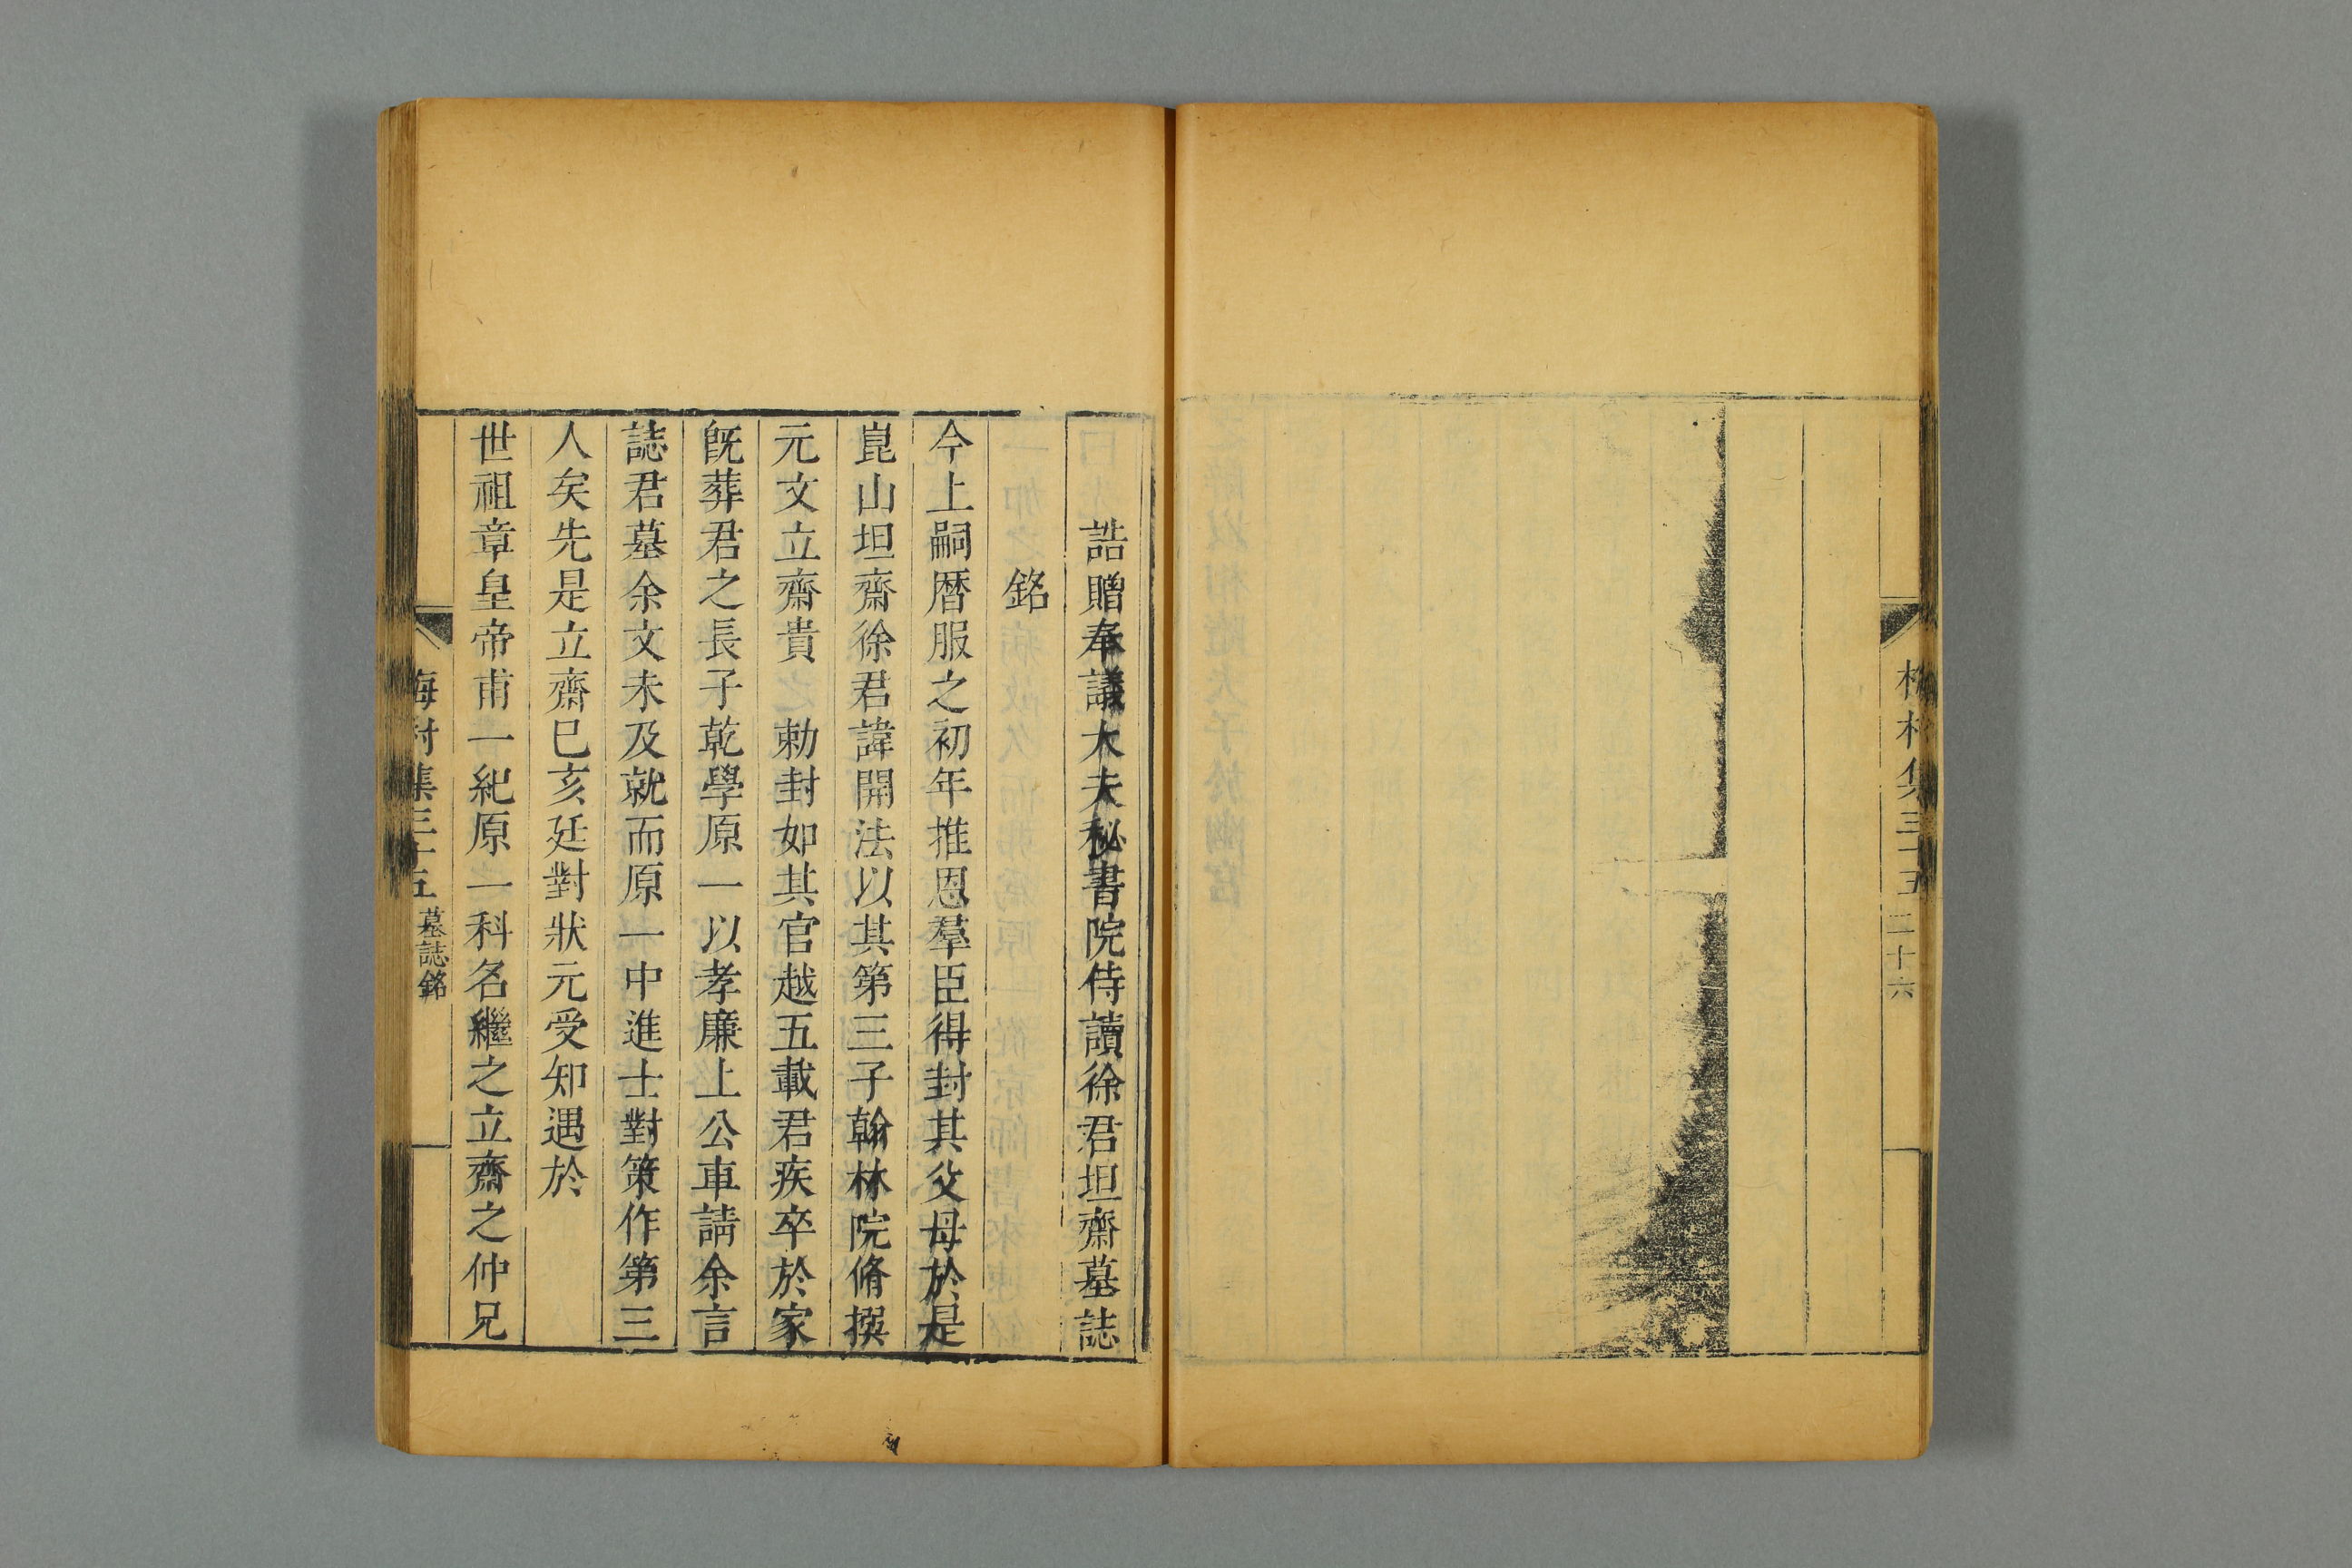 梅村集三十五
二十六
誥贈奉議大夫秘書院侍讀徐君坦齋墓誌
銘
今上嗣曆服之初年推恩羣臣得封其父母於是
崑山坦齋徐君諱開法以其第三子翰林院脩撰
元文立齋貴　勅封如其官越五載君疾卒於家
旣葬君之長子乾學原一以孝廉上公車請余言
誌君墓余文未及就而原一中進士對策作第三
人矣先是立齋巳亥廷對狀元受知遇於
世祖章皇帝甫一紀原一科名繼之立齋之仲兄
梅村集三十五
墓誌銘